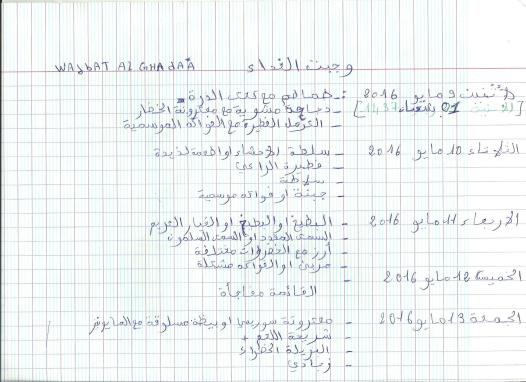 WAJBAT AL GHADAA وجبت الغداء
الاثنين 9 مايو 2016 :- طماطم مع كعك الذرة
- دجاجة مشوية مع معكرونة الخضار
[للسبت 01 شعبان 1437]
الفطيرة مع الفواكه الموسمية
الثلاثاء 10 مايو 2016 - سلطة الأحشاء او اطعمة لذيذة
- فطيرة الراعي
- سلاطة
- جبنة او فواكه موسمية
الاربعاء 11 مايو 2016 - البطيخ او البطيخ او الخيار الكريم
- السمك المقدد او السمك السلمون
- أرز مع الخضروات مختلفة
- مربى او الفواكه مشكلة
الخميس 12 مايو 2016 -
القائمة مفاجأة
الجمعة 13 مايو 2016 - معكرونة سوريمي او بيظة مسلوقة مع المايونيز
- شريحة اللحم +
- البزيلة الخظراء
- زبادي